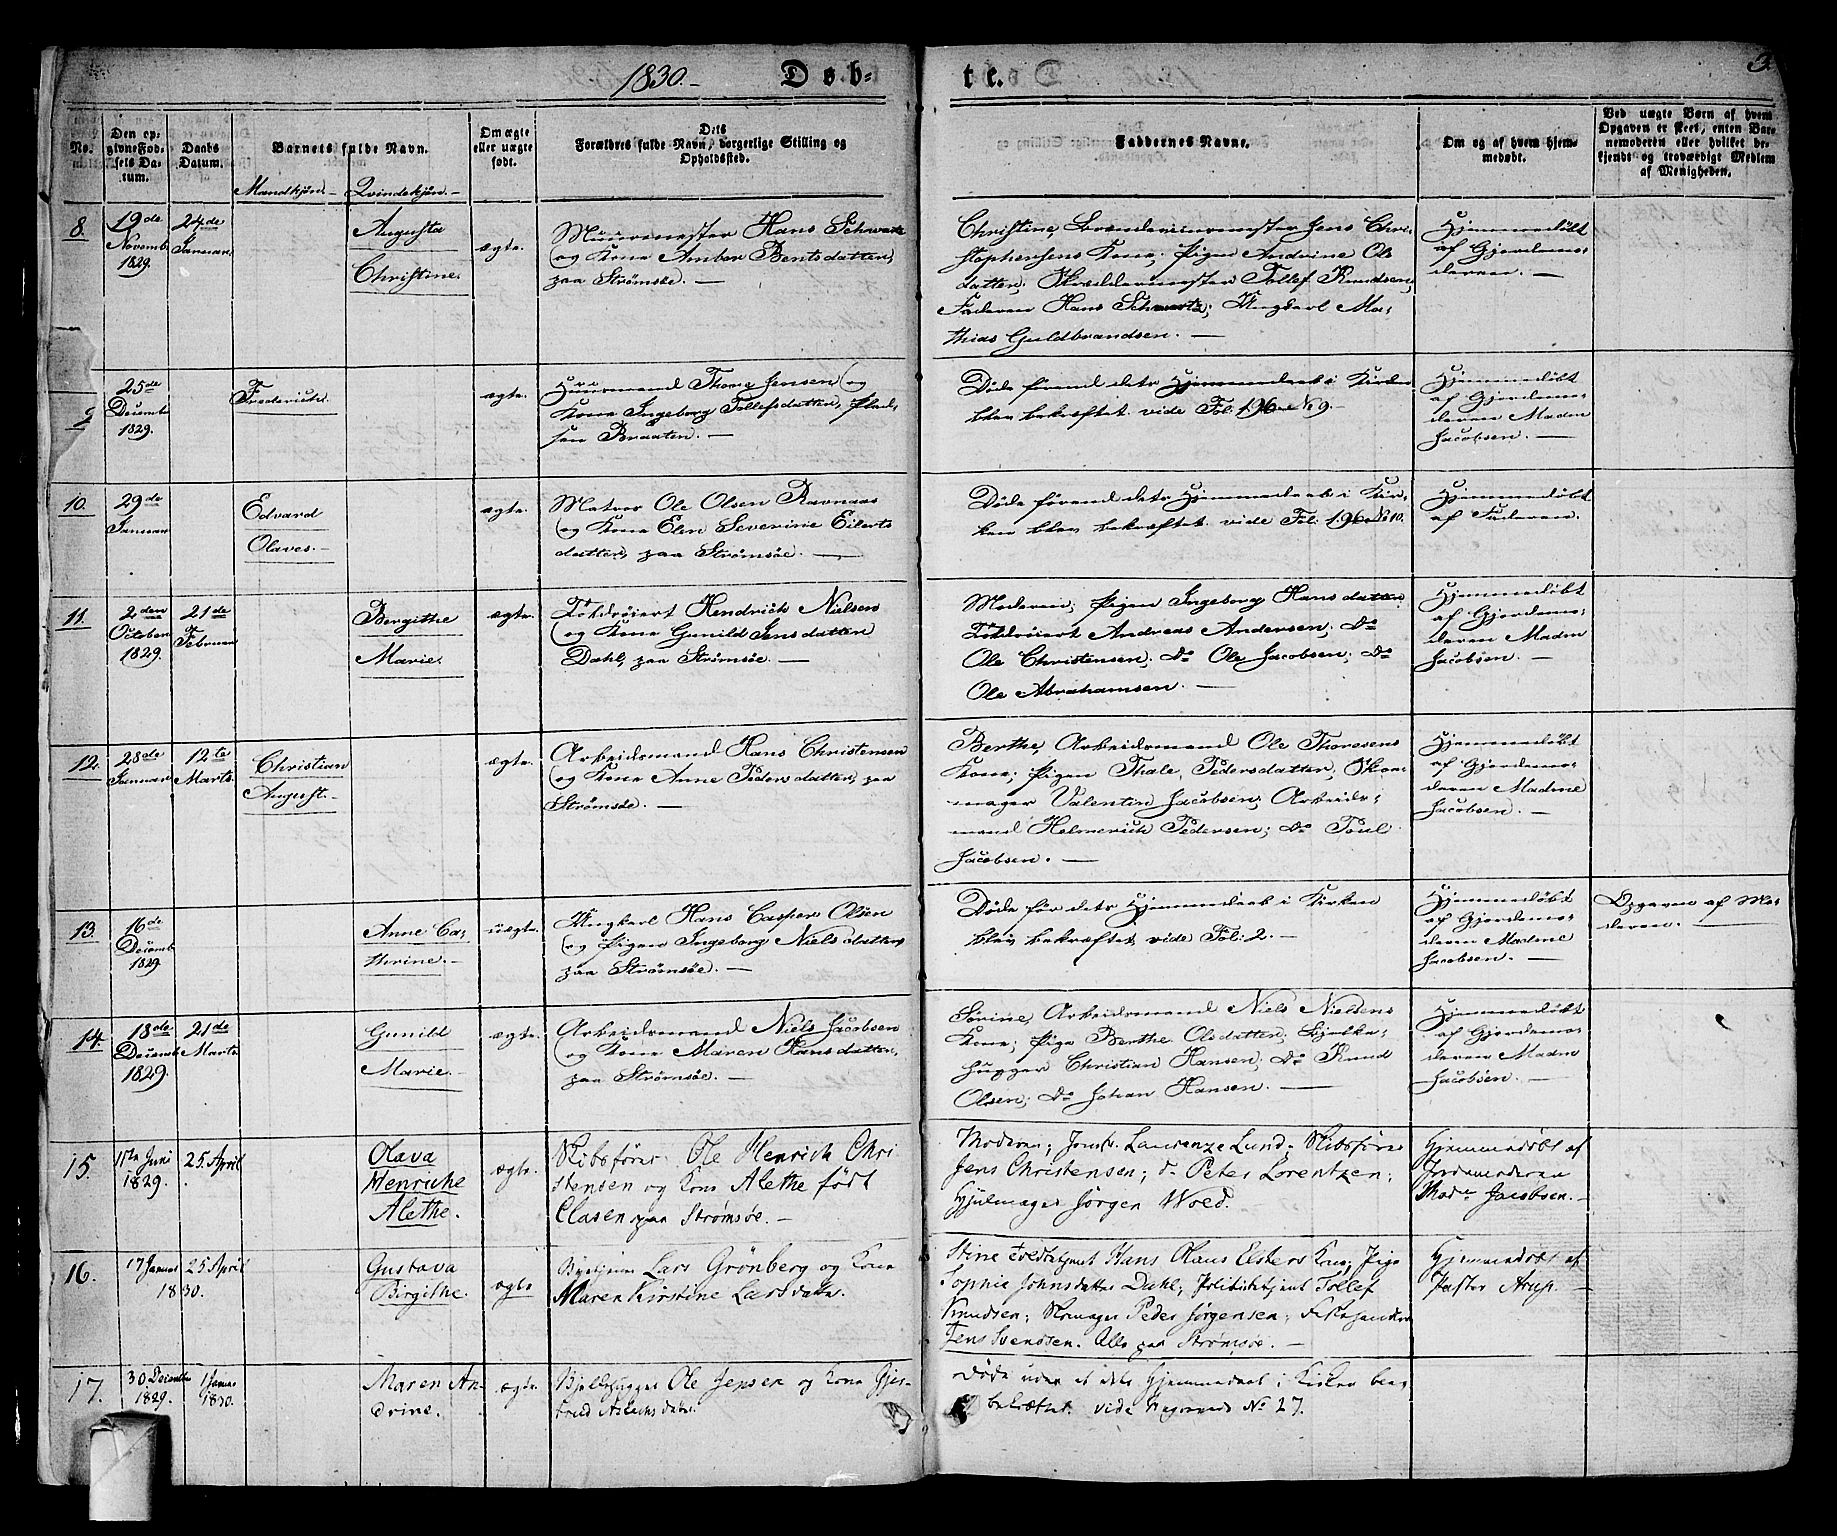 1830.- Døb- te. 3.
No. Den opgivne Fødsels Datum. Daabs Datum. Barnets fulde Navn. Om ægte eller uægte født. Dets Forældres fulde Navn, borgerlige Stilling og Opholdssted. Faddernes Navne. Om og af hvem hjemmedøbt. Ved uægte Børn af hvem Opgaven er skeet, enten Barnemoderen eller hvilket bekjendt og troværdigt Medlem af Menigheden.
Mandkjøn.- Qvindekjøn.-
8. 19de Novemb. 1829. 24de Januar.
Augusta
Christine.
ægte.
Muurmester Hans Schwartz
og Kone Ambor Bentsdatter,
paa Strømsøe. -
Christine Brandmuurmester Jens Chri-
stophersens Kone; Pigen Andrine Ols
datter; Skræddermester Tollef Knudsen;
Faderen Hans Schwartz; Ungkarl Ma-
thias Guldbrandsen. -
Hjemmedøbt
af Gjordemo-
deren. -
9. 25de Decemb. 1829.
Frederich.
ægte.
Huusmand Thore Jensen og
Kone Ingeborg Tollefsdatter, Plad-
sen Braaten. -
Døde førend dets Hjemmedaab i Kirken
blev bekræftet vide Fol. 196 No 9. -
Hjemmedøbt
af Gjordemo-
deren Madm
Jacobsen. -
10. 29de Januar
Edvard
Olaves.-
ægte.
Matros Ole Olsen Ravnaas
og Kone Elen Severine Eilerts
datter, paa Strømsøe. -
Døde førend dets Hjemmedaab i Kir-
ken blev bekræftet vide Fol. 196 No 10.
Hjemmedøbt
af Faderen.
11. 2den October 1829. 21de Februar
Bergithe
Marie.
ægte.
Toldroiert Hendrich Nielsen
og Kone Gunild Jensdatter
Dahl, paa Strømsøe. -
Moderen; Pigen Ingeborg Hansdatter;
Toldroiert Andreas Andersen; Do
Ole Christensen; Do Ole Jacobsen; Do
Ole Abrahamsen. -
Hjemmedøbt
af Gjordemo-
deren Madm
Jacobsen. -
12. 28de Januar 12te Marts.
Christian
August.-
ægte.
Arbeidsmand Hans Christensen
og Kone Anne Pedersdatter, paa
Strømsøe. -
Berthe, Arbeidsmand Ole Thoresens
Kone; Pigen Thale Pedersdatter; Skoe-
mager Valentin Jacobsen; Arbeids-
mand Helmerich Pedersen; Do Poul
Jacobsen. -
Hjemmedøbt
af Gjordemo-
deren Madme
Jacobsen. -
13. 16de Decemb 1829.
Anne Ca-
thrine.-
uægte.
Ungkarl Hans Casper Olsen
og Pigen Ingeborg Nielsdatter,
paa Strømsøe. -
Døde før dets Hjemmedaab i Kirken
blev bekræftet vide Fol: 2. -
Hjemmedøbt
af Gjordemo-
deren Madme
Jacobsen. -
Opgaven af Mo-
deren. -
14. 18de Decemb 1829. 21de Marts.
Gunild
Marie.-
ægte.
Arbeidsmand Niels Jacobsen
og Kone Maren Hansdatter,
paa Strømsøe. -
Sørine, Arbeidsmand Niels Nielsens
Kone; Pige Berthe Olsdatter; Bjelke-
hugger Christian Hansen; Do Knud
Olsen; Do Johan Hansen. -
Hjemmedøbt
af Gjordemo-
deren Madm
Jacobsen. -
15. 11te Juni 1829. 25. April
Olava
Henriche
Alethe.
ægte.
Skibsfører Ole Henrich Chri
stensen og Kone Alethe født
Clasen paa Strømsøe. -
Moderen; Jomfr. Laurenze Lund; Skibsfører
Jens Christensen; do Peter Lorentzen;
Hjulmager Jørgen Wold.
Hjemmedøbt af
Jordemoderen
Mad. Jacobsen. -
16. 17 Januar 25 April
1830.
Gustava
Birgithe.
ægte
Lars Grønberg og Kone
Maren Kirstine Larsdatter.
Stine Toldbetjent Hans Olaus Elsters Kone; Pige
Sophie Johnsdatter Dahl; Politibetjent Tollef
Knudsen; Skomager Peder Jørgensen;
Jens Svendsen. Alle paa Strømsøe. -
Hjemmedøbt af
Pastor Arup. -
17. 30 December 1829. 1 Januar 1830.
Maren An-
drine.
ægte.
Bjelkehugger Ole Jensen og Kone Gjer-
trud Aslachsdatter.
Døde uden at dets Hjemmedaab i Kirken blev
bekræftet. vide No 27.